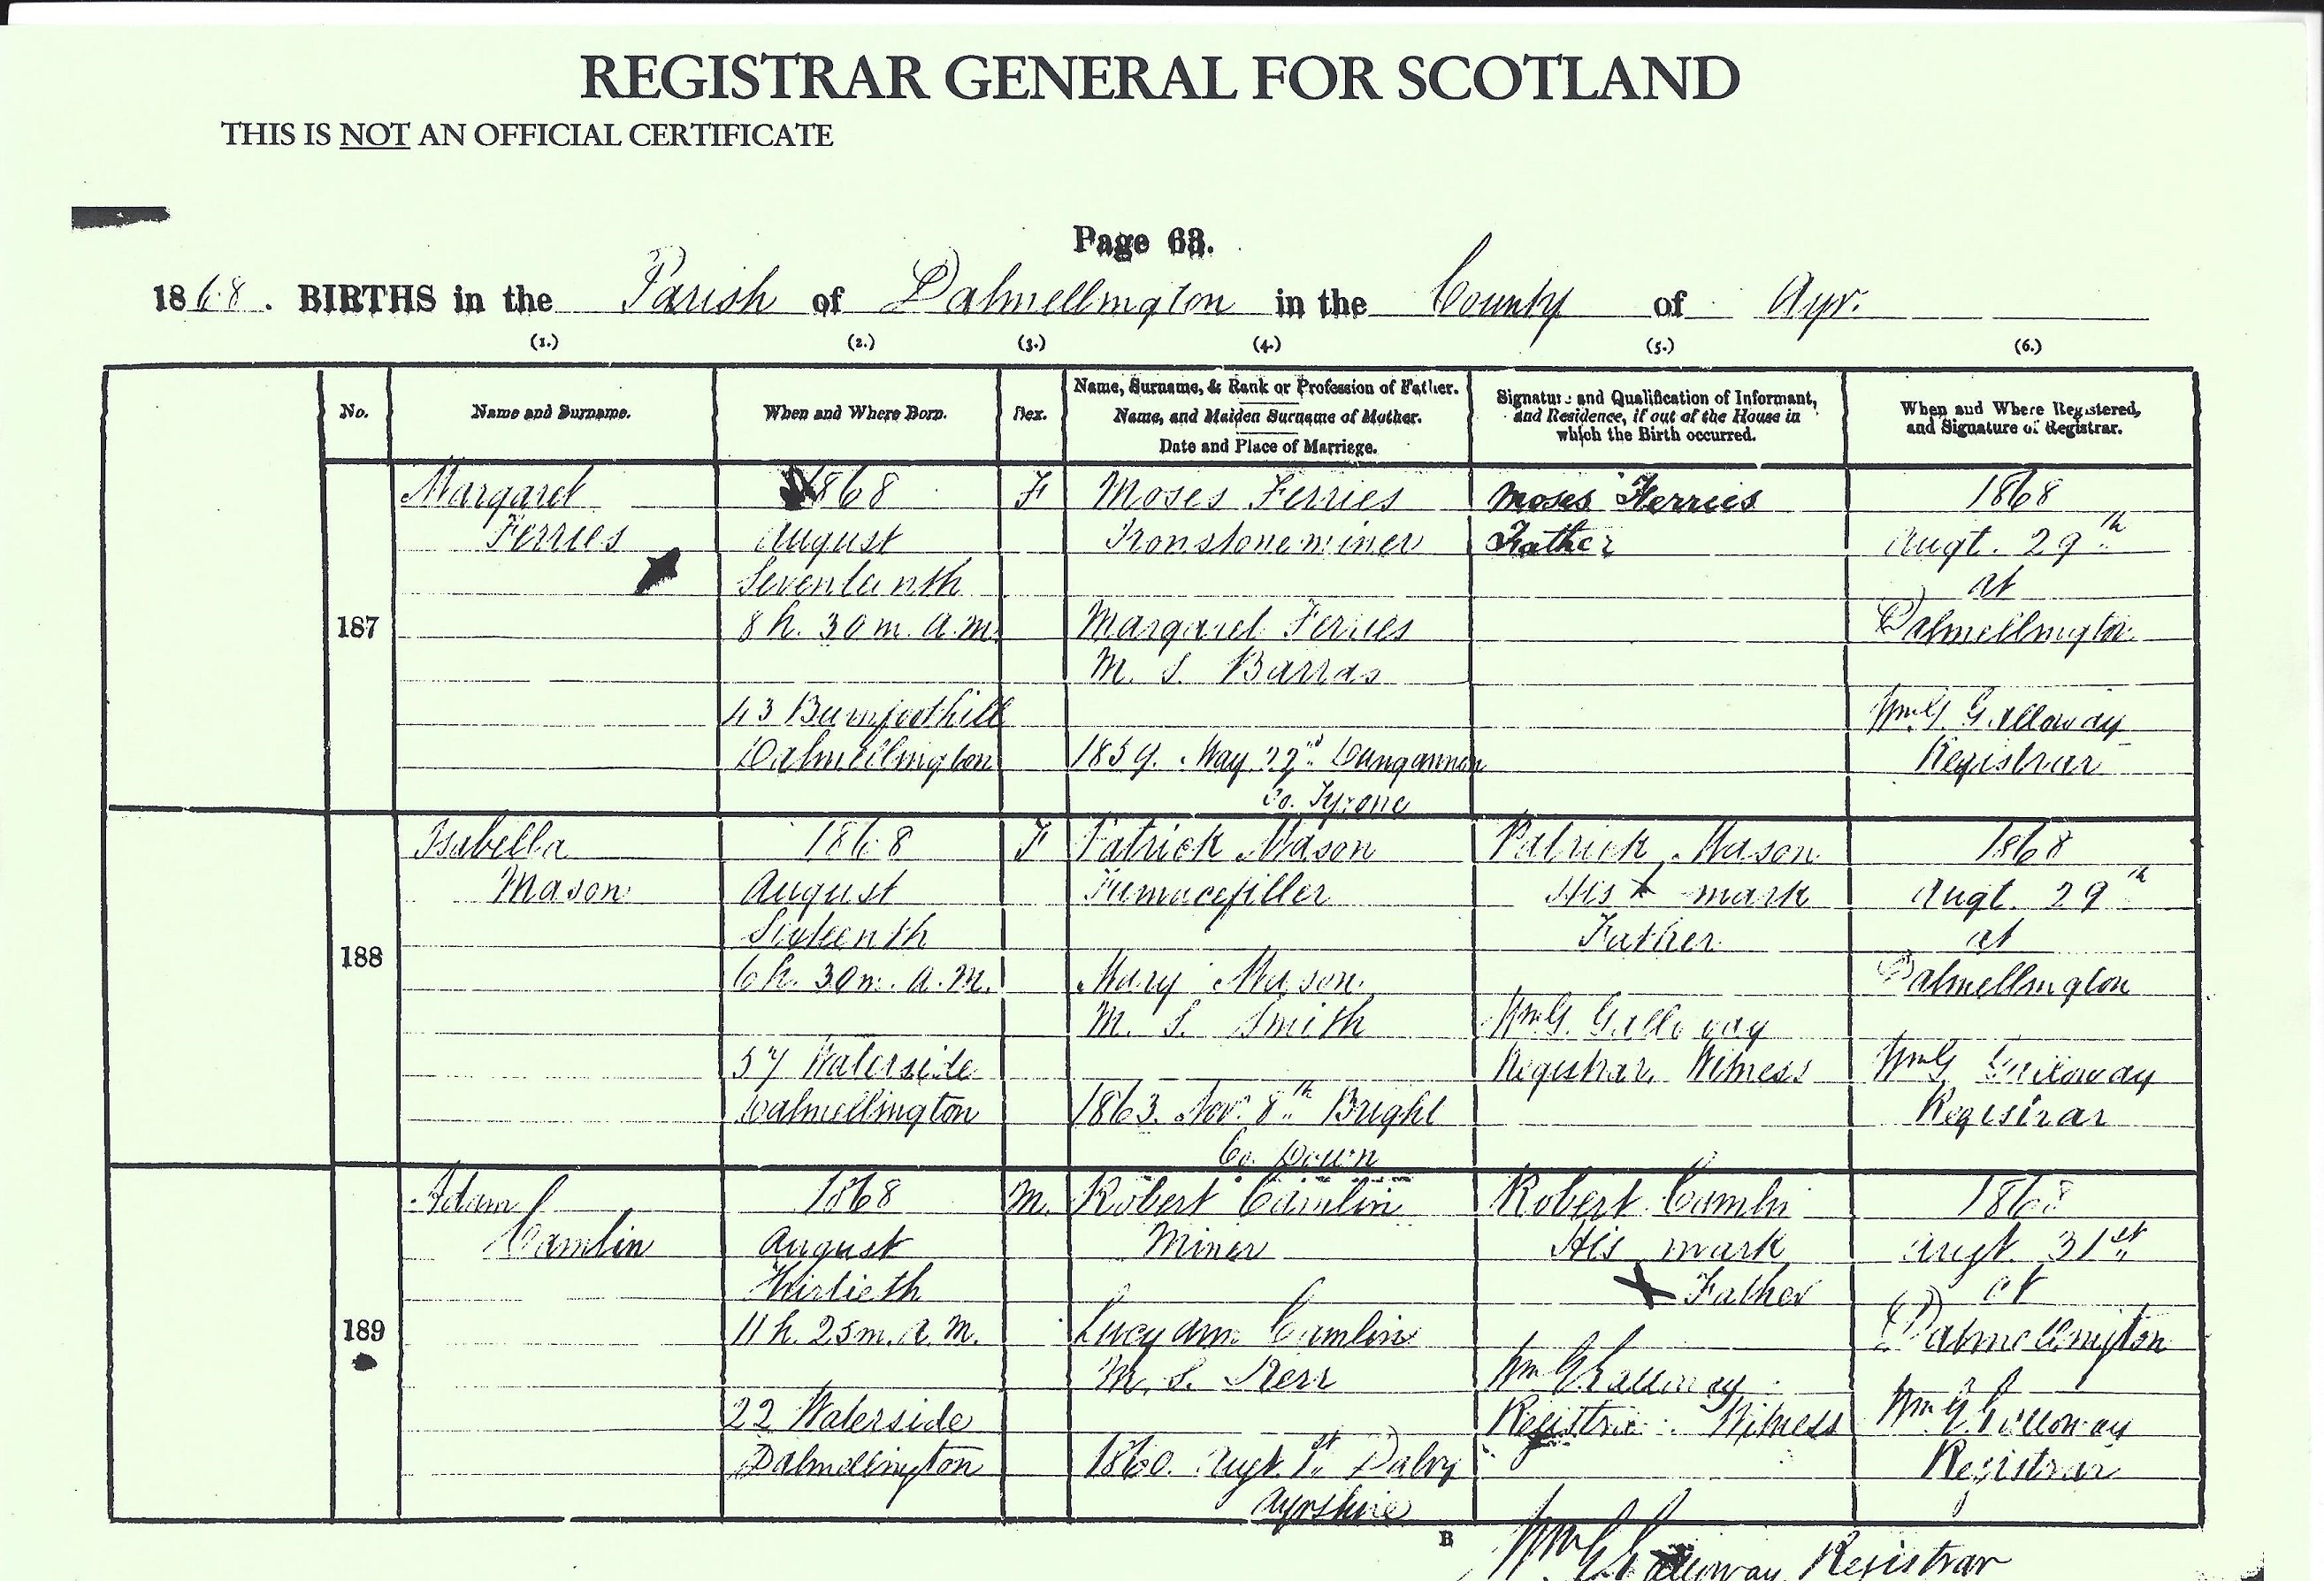 REGISTRAR GENERAL FOR SCOTLAND
THIS IS NOT AN OFFICIAL CERTIFICATE
Page 63.
1868. BIRTHS in the Parish of Dalmellington in the County of Ayr.
(1.) (2.) (3.) (4.) (5.) (6.)
No.
Name and Surname.
When and Where Born.
Sex.
Name, Surname, & Rank or Profession of Father.
Name, and Maiden Surname of Mother.
Date and Place of Marriage.
Signature and Qualification of Informant,
and Residence, if out of the House in
which the Birth occurred.
When and Where Registered,
and Signature of Registrar.
187
Margaret
Ferries
1868
August
Seventeenth
8 h. 30 m. A.M.
43 Burnfoothill
Dalmellington
F
Moses Ferries
Ironstoneminer
Margaret Ferries
M. S. Barras
1859. May 22nd Dungannon
Co. Tyrone
Moses Ferries
Father
1868
Augt. 29th
at
Dalmellington
Wm G Galloway
Registrar
188
Isabella
Mason
1868
August
Sixteenth
6 h. 30 m. A.M.
57 Waterside
Dalmellington
F
Patrick Mason
Furnacefiller
Mary Mason
M. S. Smith
1863. Nov. 8th Bright
Co. Down
Patrick Mason
His x mark
Father
Wm G. Galloway
Registrar, Witness
1868
Augt. 29th
at
Dalmellington
Wm G Galloway
Registrar
189
Adam
Camlin
1868
August
Thirtieth
11 h. 25 m. A.M.
22 Waterside
Dalmellington
M.
Robert Camlin
Miner
Lucy Ann Camlin
M. S. Kerr
1860. Augt. 1st Dalry
Ayrshire
Robert Camlin
His mark
X Father
Wm G Galloway
Registrar Witness
1868
Augt. 31st
at
Dalmellington
Wm G Galloway
Registrar
B
Wm G Galloway, Registrar